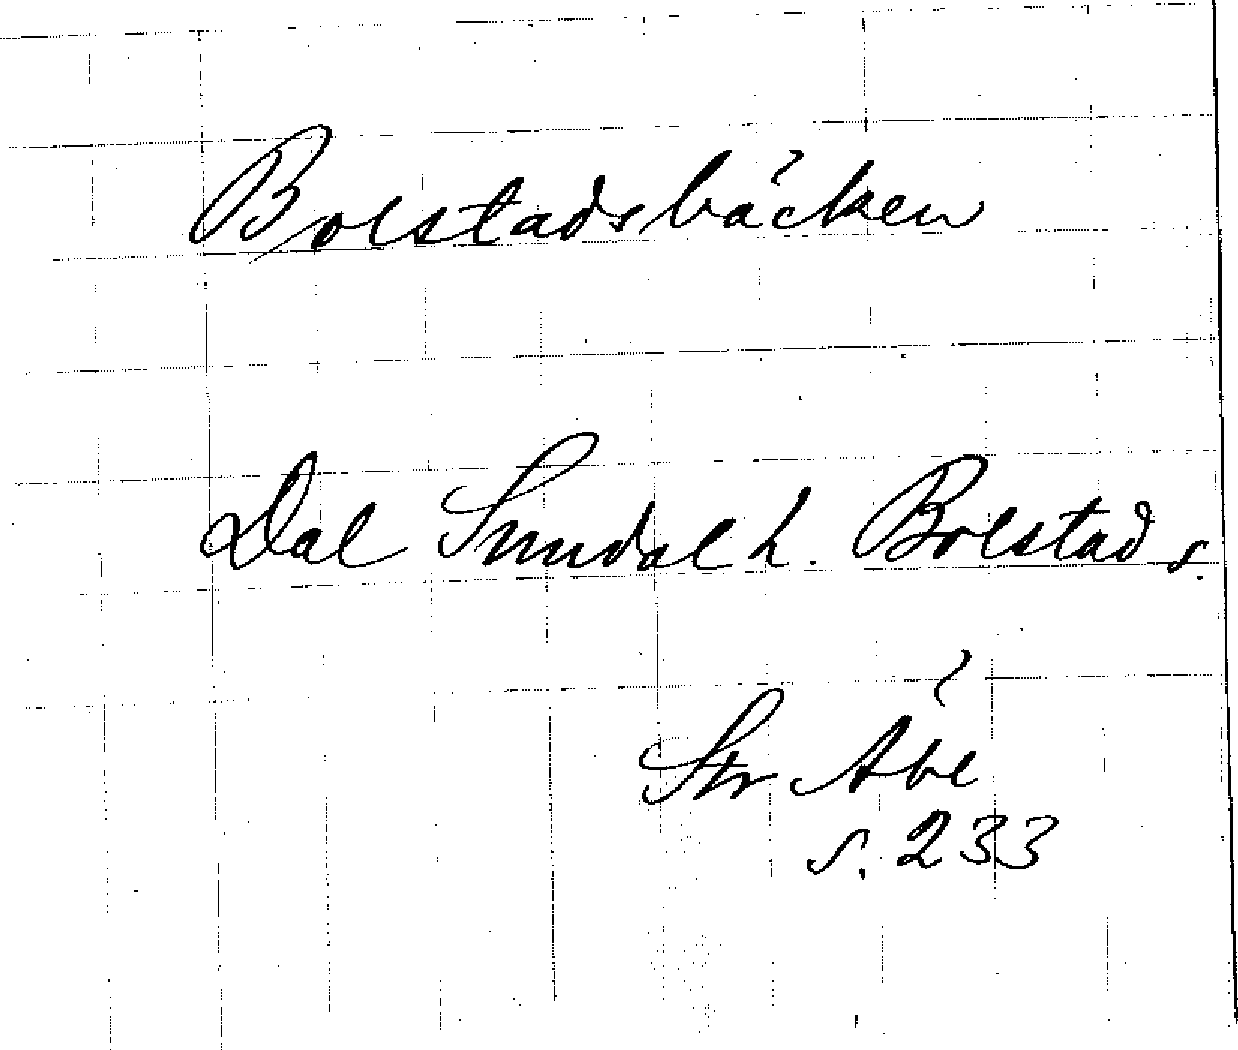 Bolstadsbäcken
Dal Sundal h. Bolstad s.
Str Åbe
s. 233